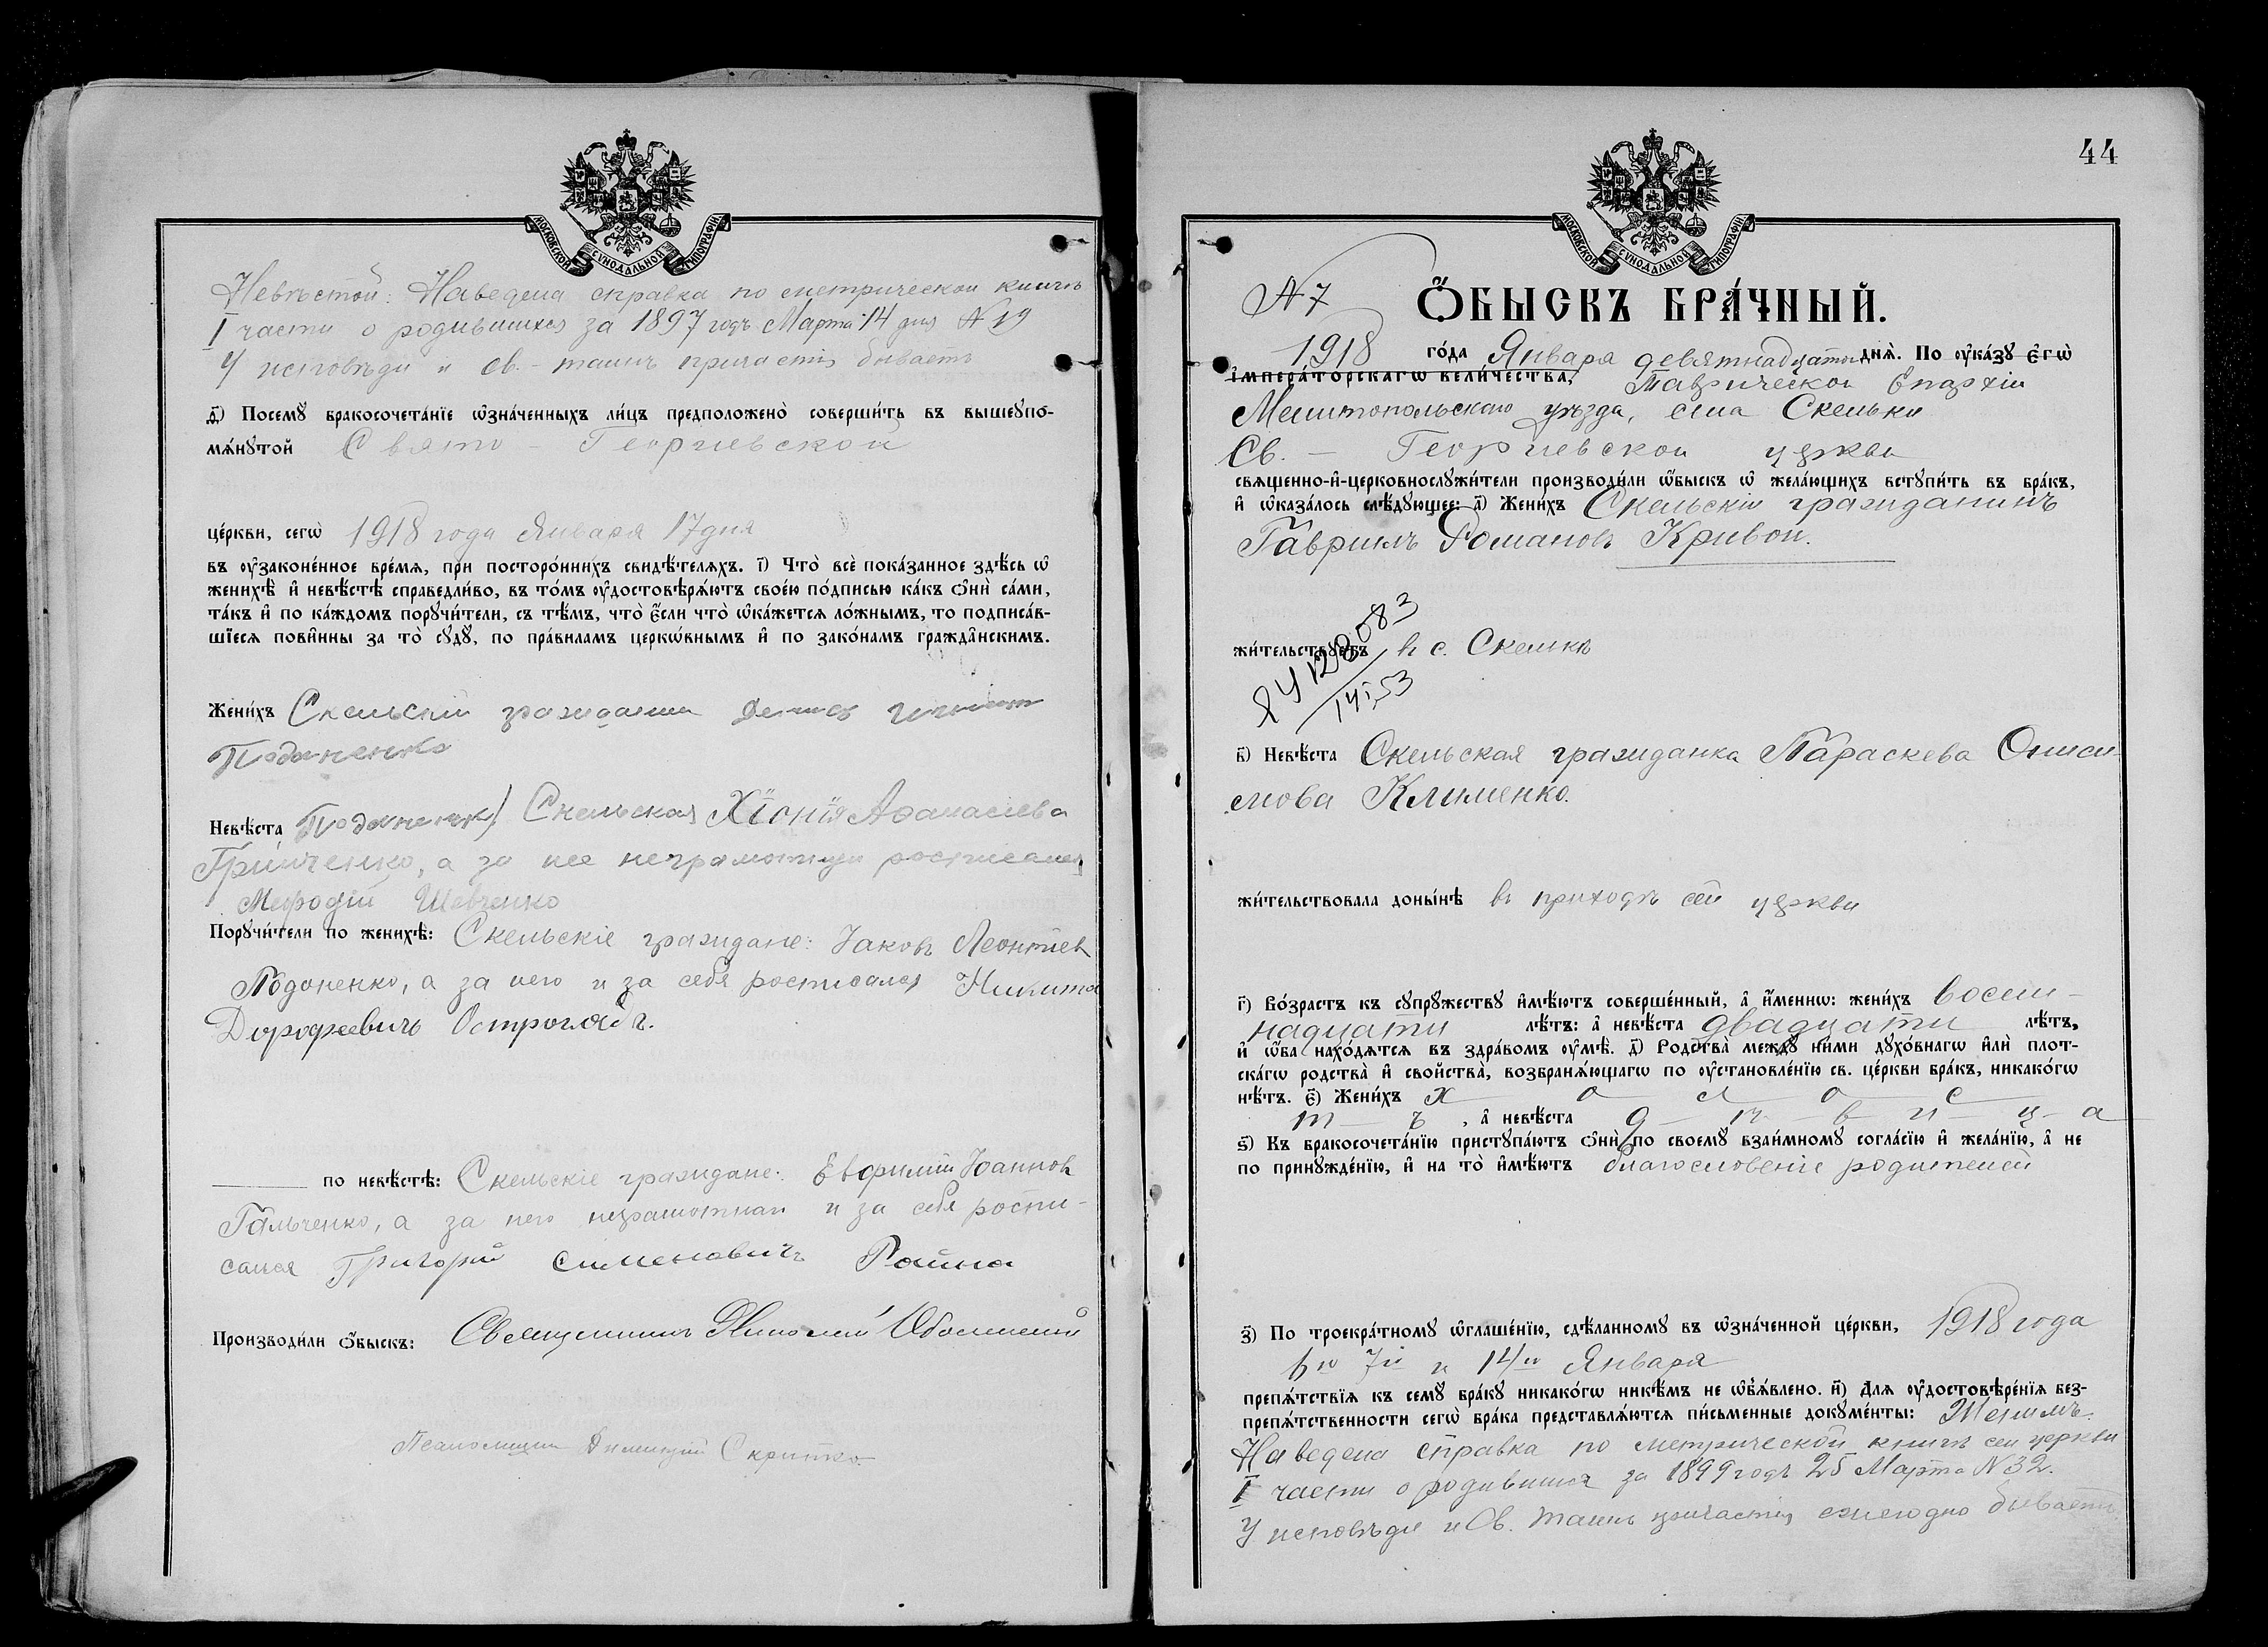 МОСКОВСКОЙ СѴНОДАЛЬНОЙ ТИПОГРАФІИ
Невѣстой: Наведена справка по метрической книгѣ
I части о родившихся за 1897 годъ Марта 14 дня № 19
У исповѣди и св. – таинъ причастія бываетъ
д҃) Посемꙋ̀ бракосочета́нїе ѡ҆зна́ченныхъ ли́цъ предположено̀ соверши́ть въ вышеꙋпо-
мѧ́нꙋтой Свято – Георгіевской
це́ркви, сегѡ̀ 1918 года Января 17 дня
въ ᲂу҆законе́нное вре́мѧ, при посторо́ннихъ свидѣ́телѧхъ. і҃) Что̀ всѐ пока́занное здѣ́сь ѡ҆
женихѣ̀ и҆ невѣ́стѣ справедли́во, въ то́мъ ᲂу҆достовѣрѧ́ютъ свое́ю по́дписью ка́къ ѻ҆нѝ са́ми,
та́къ и҆ по ка́ждомъ порꙋчи́тели, съ тѣ́мъ, что̀ є҆́сли что̀ ѡ҆ка́жетсѧ ло́жнымъ, то подписа́в-
шїесѧ пови́нны за то̀ сꙋдꙋ̀, по пра́виламъ церко́внымъ и҆ по зако́намъ гражда́нскимъ.
Жени́хъ Скельскій гражданин
Подоненко
Невѣ́ста Скельская Хіонія Аѳанасіева
Гринченко, а за нее неграмотную росписался
Мефодій Шевченко
Порꙋчи́тели по женихѣ̀: Скельскіе граждане: Іаковъ Леонтіев
Подоненко, а за него и за себя росписался Никита
Дорофеевичъ Остроглядъ.
по невѣ́стѣ: Скельскіе граждане: Евфимій Іоаннов
Гальченко, а за него неграмотнаго и за себя роспи-
сался Григорій Сименовичъ Райна
Производи́ли ѻ҆́быскъ: Священникъ Николай
Псаломщикъ Димитрій Скрипко
44
МОСКОВСКОЙ СѴНОДАЛЬНОЙ ТИПОГРАФІИ
№ 7
Ѻ҆́БЫСКЪ БРА́ЧНЫЙ.
1918 го́да Января девятнадцатого днѧ̀. По ᲂу҆ка́зꙋ є҆гѡ̀
і҆мпера́торскагѡ вели́чества, Таврической Епархіи
Мелитопольскаго уѣзда, села Скельки
Св. – Георгіевской церкви
свѧщенно-и҆-церковнослꙋжи́тели производи́ли ѡ҆́быскъ ѡ҆ жела́ющихъ встꙋпи́ть въ бра́къ,
и҆ ѡ҆каза́лось слѣ́дꙋющее: а҃) Жени́хъ Скельскій гражданинъ
Гавриилъ Романовъ Кривой.
жи́тельствꙋетъ в с. Скелькѣ
в҃) Невѣ́ста Скельская гражданка Параскева Ониси-
мова Клименко.
жи́тельствовала доны́нѣ въ приходѣ сей церкви
г҃) Во́зрастъ къ сꙋпрꙋ́жествꙋ и҆мѣ́ютъ соверше́нный, а҆ и҆́меннѡ: жени́хъ восем-
надцати лѣ́тъ: а҆ невѣ́ста двадцати лѣ́тъ,
и҆ ѡ҆́ба нахо́дѧтсѧ въ здра́вомъ ᲂу҆мѣ̀. д҃) Родства̀ междꙋ̀ ни́ми дꙋхо́внагѡ и҆лѝ плот-
ска́гѡ родства̀ и҆ сво́йства, возбранѧ́ющагѡ по ᲂу҆становле́нїю св. це́ркви бра́къ, никако́гѡ
нѣ́тъ. є҃) Жени́хъ х о л о с
т ъ, а҆ невѣ́ста д ѣ в и ц а
ѕ҃) Къ бракосочета́нїю пристꙋпа́ютъ ѻ҆нѝ по своемꙋ̀ взаи́мномꙋ согла́сїю и҆ жела́нїю, а҆ не
по принꙋжде́нїю, и҆ на то̀ и҆мѣ́ютъ благословеніе родителей
з҃) По троекра́тномꙋ ѡ҆глаше́нїю, сдѣ́ланномꙋ въ ѡ҆зна́ченной це́ркви, 1918 года
6го 7го и 14го Января
препѧ́тствїѧ къ семꙋ̀ бра́кꙋ никако́гѡ никѣ́мъ не ѡ҆б̾ѧ́влено. и҃) Длѧ ᲂу҆достовѣре́нїѧ без-
препѧ́тственности сегѡ̀ бра́ка представлѧ́ютсѧ пи́сьменные докꙋме́нты: Женихъ:
Наведена справка по метрической книгѣ сей церкви
I части о родившихся за 1899 годъ 25 Марта № 32.
У исповѣди и Св. таинъ причастія ежегодно бываетъ